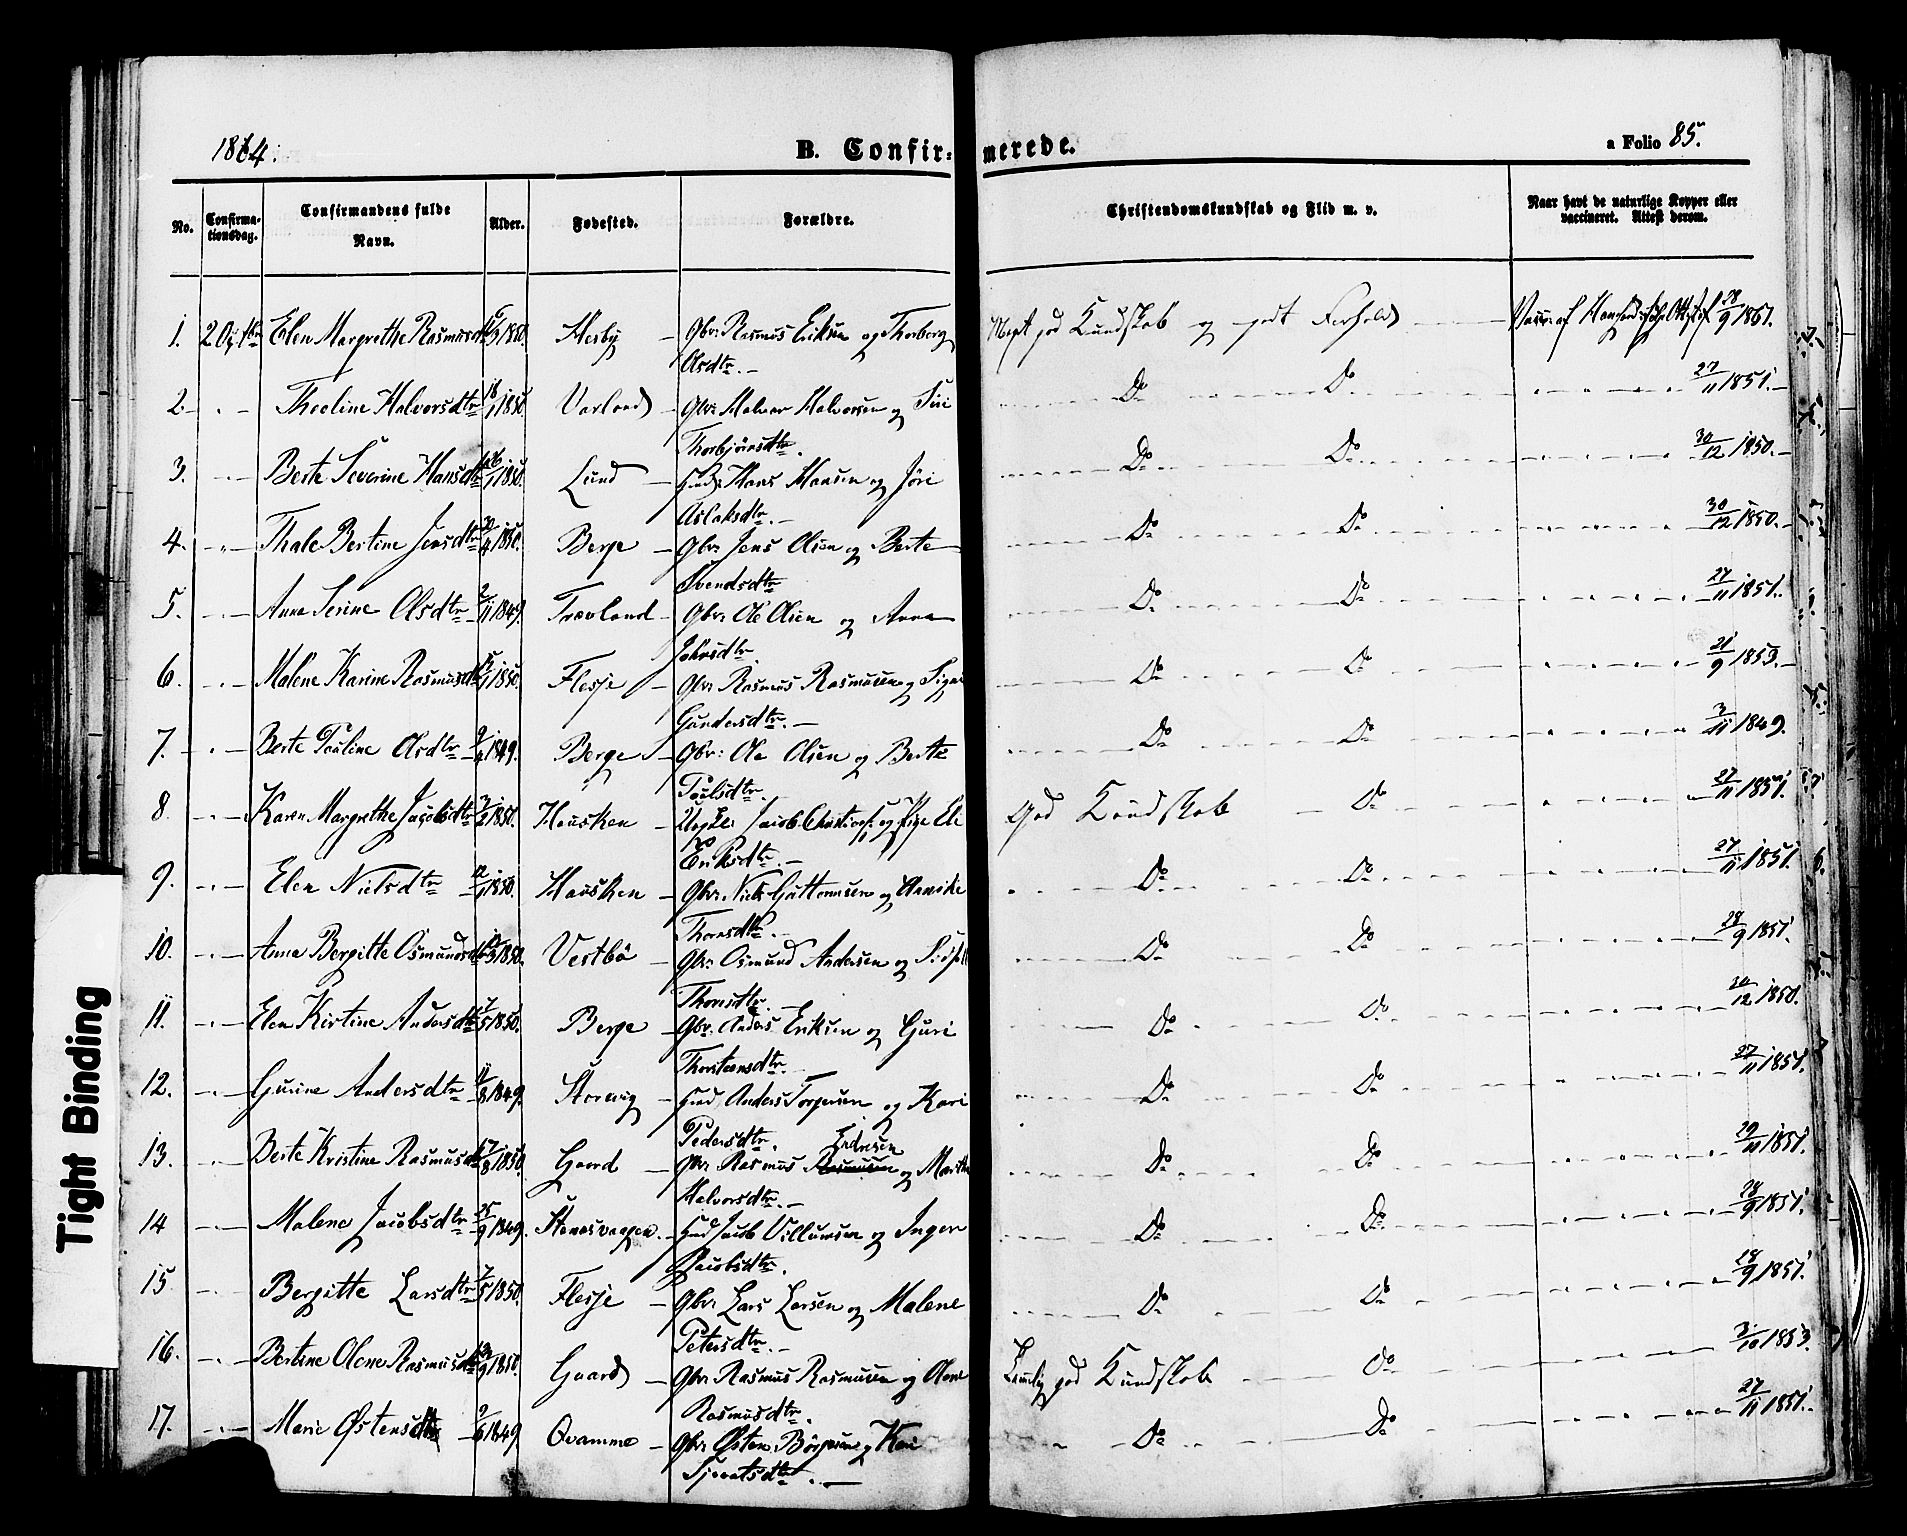 1864.
B. Confir-
merede.
a Folio 85.
No.
Confirma-
tionsdag.
Confirmandens fulde
Navn.
Alder.
Fødested.
Forældre.
Christendomskundskab og Flid m. v.
Naar havt de naturlige Kopper eller
vaccineret. Attest derom.
1. 2 Elen Margrethe Rasmusdtr 1850. Hesby Gbr: Rasmus Eriksen og Thorborg Meget god Kundskab og godt Forhold 28/9 1851.
Olsdtr. —
2. - " - Theoline Halvorsdtr 18/1 1850. Varland Gbr: Halvor Halvorsen og Siri Do Do 27/11 1851. —
Thorbjørnsdtr.
3. - " - Berte Severine Hansdtr 26/1 1850. Lund — Hans Hansen og Jøri Do Do 30/12 1850. —
Aslaksdtr. —
4. - " - Thale Bertine Jensdtr 1850. Berge — Gbr: Jens Olsen og Berte Do Do 30/12 1850. —
Svendsdtr
5. - " - Anna Serine Olsdtr 2/11 1849. Trævland — Gbr: Ole Olsen og Anna Do Do 27/11 1851.
Johnsdtr.
6. - " - Malene Karine Rasmusdtr 1850. Flesje — Gbr: Rasmus Rasmusen og Do Do 21/9 1853. —
Gundersdtr. —
7. - " - Berte Pouline Olsdtr 9/4 1849. Berge — Gbr: Ole Olsen og Berte Do Do 3/11 1849.
Poulsdtr.
8. - " - Karen Margrethe Jacobsdtr 3/2 1850. Housken — Jacob og Pige Eli God Kundskab — Do 27/11 1851.
Eriksdtr. —
9. - " - Elen Nielsdtr 1850. Housken — Gbr: Niels Guttormsen og Do Do 27/11 1851.
Thorsdtr. —
10. - " - Anna Bergitte Osmundsdtr 1850. Vestbø — Gbr: Osmund Andersen og Do Do 28/9 1851.
Thorsdtr. —
11. - " - Elen Kirstine Andersdtr 7/5 1850. Berge — Gbr: Anders Eriksen og Guri Do Do 30/12 1850.
Thorsteensdtr. —
12. - " - Gurine Andersdtr 1849. Storevig — Anders Torgersen og Kari Do Do 27/11 1851.
Pedersdtr. Endresen
13. - " - Berte Kristine Rasmusdtr 1850. Goard — Gbr: Rasmus Rasmusen og Marthe Do Do 29/11 1851.
Halvorsdtr. —
14 - " - Malene Jacobsdtr 25/9 1849. Stenesvaagen. — Jacob Villumsen og Inger Do Do 28/9 1851.
Jacobsdtr.
15 - " - Bergitte Larsdtr 7/5 1850. Flesje — Gbr: Lars Larsen og Malene Do Do 28/9 1851.
Petersdtr. —
16. - " - Bertine Olene Rasmusdtr 1850. Gaard — Gbr: Rasmus Rasmusen og Temlig god Kundskab — Do 3/10 1853.
Rasmusdtr.
17. - " - Marie Østensdtr 1849 Qvamme — Gbr: Østen Børgesen og Kari Do Do 27/11 1851.
Sjovatsdtr. —
Tight Binding